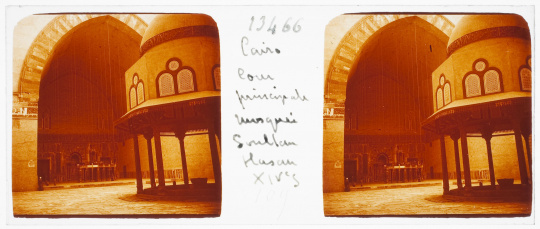 13466
Cairo
Cour
principale
mosquée
Soultan
Hasan
XIVes